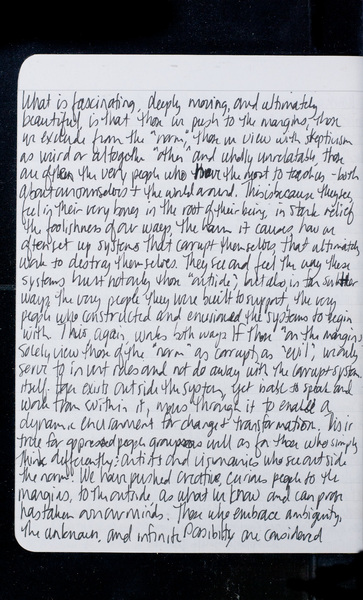 What is fascinating, deeply moving, and ultimately
beautiful is that those we push to the margins, those
we exclude from the "norm", those we view with skepticism
as weird or altogether "other", and wholly unrelatable, those
are often the very people who have the most to teach us - both
about ourselves + the world around. This is because they see,
feel in their very bones, in the root of their being, in stark relief
the foolishness of our ways. The harm it causes, how we
often set up systems that corrupt themselves, that ultimately
work to destroy themselves. They see and feel the way these
systems hurt not only those "outside", but also in far subtler
ways the very people they were built to support, the very
people who constructed and envisioned the systems to begin
with. This, again, works both ways. If those "on the margins"
solely view those of the "norm" as corrupt, as "evil", we only
serve to invert roles and not do away with the corrupt system
itself. to exist outside the system, yet be able to speak and
work from within it, move through it to enable a
dynamic environment for change + transformation. This is
true for oppressed people groups as well as for those who simply
think differently: artists and visionaries who see outside
the norm. We have pushed creative, curious people to the
margins, to the outside as what we know and can prove
has taken our minds. Those who embrace ambiguity,
the unknown, and infinite possibility are considered